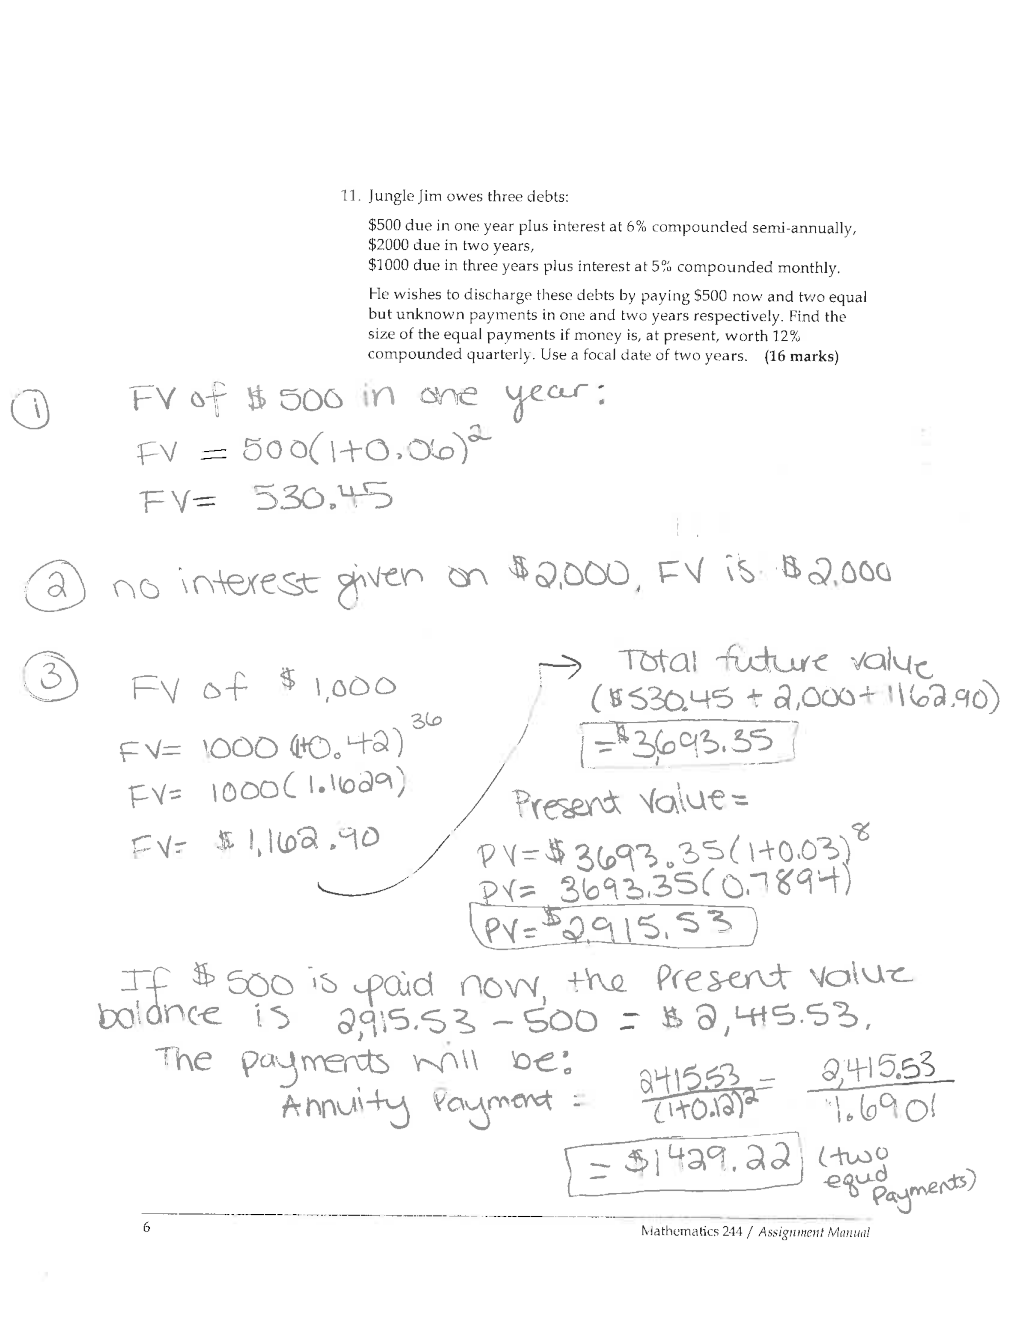 11. Jungle Jim owes three debts:
$500 due in one year plus interest at 6% compounded semi-annually,
$2000 due in two years,
$1000 due in three years plus interest at 5% compounded monthly.
He wishes to discharge these debts by paying $500 now and two equal
but unknown payments in one and two years respectively. Find the
size of the equal payments if money is, at present, worth 12%
compounded quarterly. Use a focal date of two years. (16 marks)
① FV of $500 in one year:
FV = 500(1+0.06)²
FV= 530.45
② no interest given on $2,000, FV is $2,000
③ FV of $1,000
FV= 1000(1+0.42)³⁶
FV= 1000(1.1629)
FV= $1,162.90
→ Total future value
($530.45 + 2,000 + 1162.90)
=$3,693.35
Present Value =
PV=$3693.35(1+0.03)⁸
PV= 3693.35(0.7894)
PV=$2,915.53
If $500 is paid now, the present value
balance is 2,915.53 - 500 = $2,415.53.
The payments will be:
Annuity Payment = 2415.53/(1+0.12)² = 2,415.53/1.6901
= $1429.22 (two
equal
payments)
6
Mathematics 244 / Assignment Manual